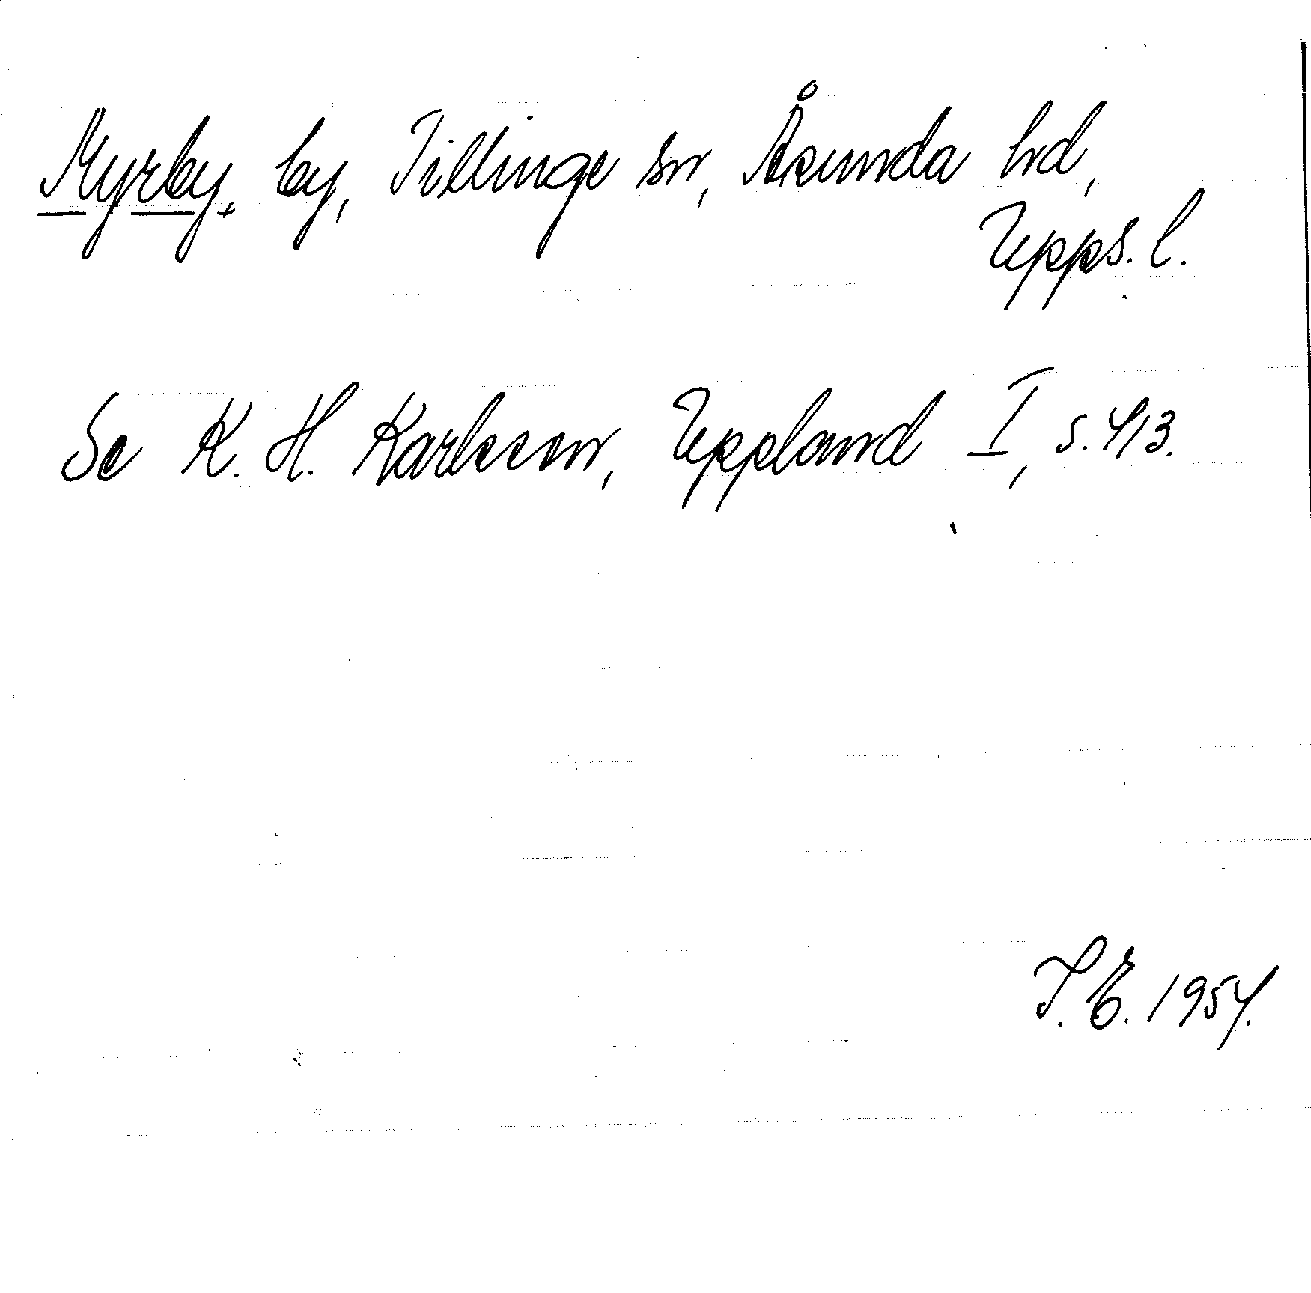 Myrby, by, Tillinge sn, Åsunda hd,
Upps. l.
Se K. H. Karlsson, Uppland I, s. 413.
T. E. 1954.